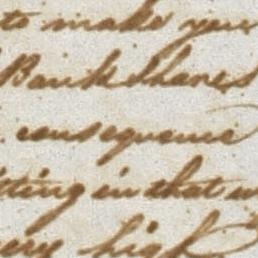 to make your
Bank Shares
consequence
itting in that w
very high